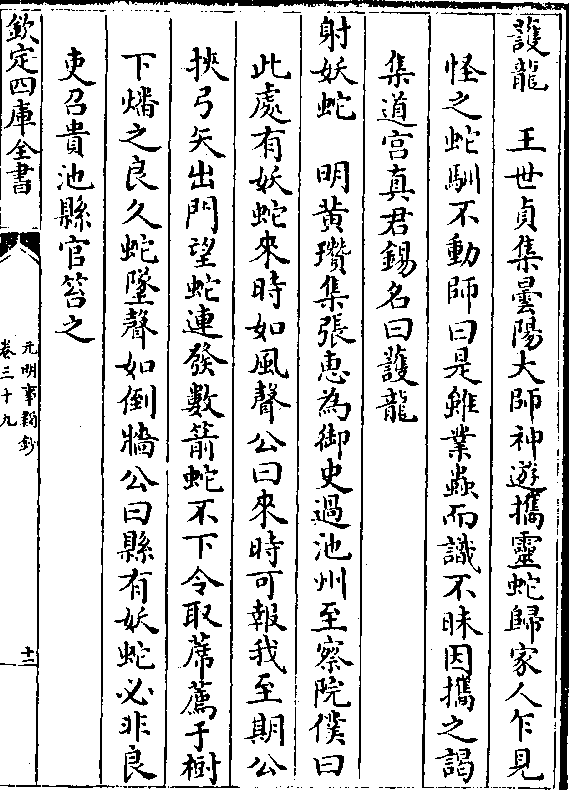 護龍　王世貞集曇陽大師神遊攜靈蛇歸家人乍見
怪之蛇馴不動師曰是雖業蟲而識不昧因攜之謁
集道宮真君錫名曰護龍
射妖蛇　明黄瓚集張恵為御史過池州至察院僕曰
此處有妖蛇來時如風聲公曰來時可報我至期公
挾弓矢出門望蛇連發數箭蛇不下令取蓆薦于樹
下燔之良久蛇墜聲如倒牆公曰縣有妖蛇必非良
吏召貴池縣官笞之
欽定四庫全書
元明事類鈔
卷三十九
十二